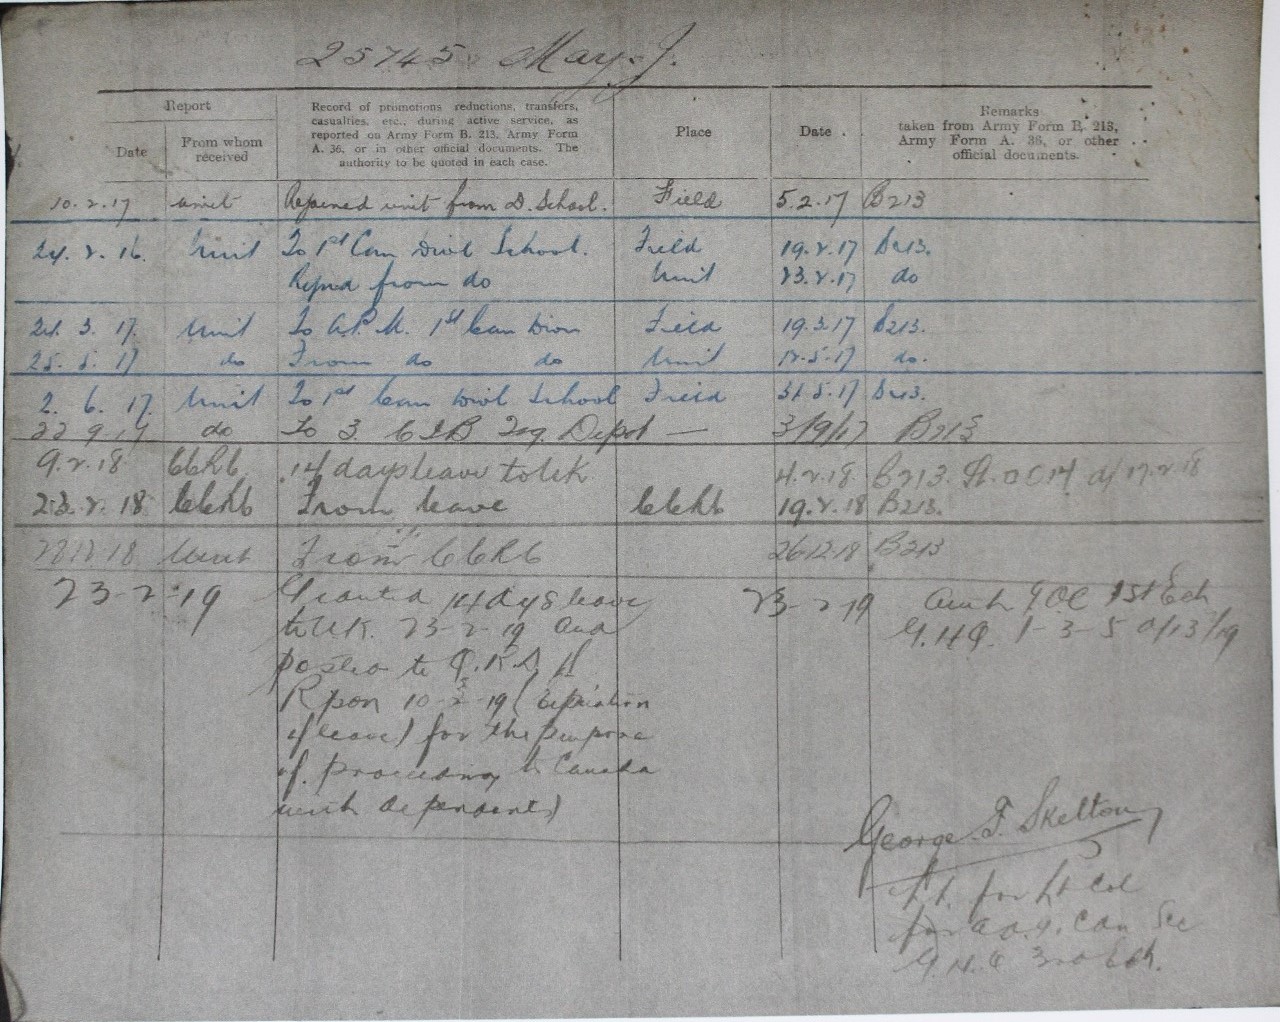 25745 May. J.
Report
Date
From whom received
Record of promotions reductions, transfers,
casualties, etc., during active service, as
reported on Army Form B. 213, Army Form
A. 36, or in other official documents. The
authority to be quoted in each case.
Place
Date
Remarks
taken from Army Form B. 213,
Army Form A. 36, or other
official documents.
10.2.17 unit Rejoined unit from D. School. Field 5.2.17 B213
24.2.16. Unit To 1st Can Divl School. Field 19.2.17 B213.
Rejnd from do Unit 23.2.17 do
24.3.17. Unit To A.P.M. 1st Can Divn Field 19.3.17 B213.
25.5.17 do From do do Unit 18.5.17 do.
2.6.17. Unit To 1st Can Divl School Field 31.5.17 B213.
22 9 17 do To 3. C I B Trg Depot — 3/9/17 B213
9.2.18 CCRC 14 days leave to UK 4.2.18. B213. 17.2.18
23.2.18 CCRC From leave CCRC 19.2.18 B213.
28 12 18 Unit From CCRC 26 12 18 B213
23-2-19 Granted 14 days leave 23-2-19 Auth GOC 1st Ech
to UK. 23-2-19 and G.H.Q. 1-3-5 d/13/2/19
posted to Q.R.D.
Ripon 10-3-19 (Expiration
of leave) for the purpose
of proceeding to Canada
with dependents)
George F. Skelton
Lt. for Lt Col
for A.A.G. Can Sec
G.H.Q 3rd Ech.